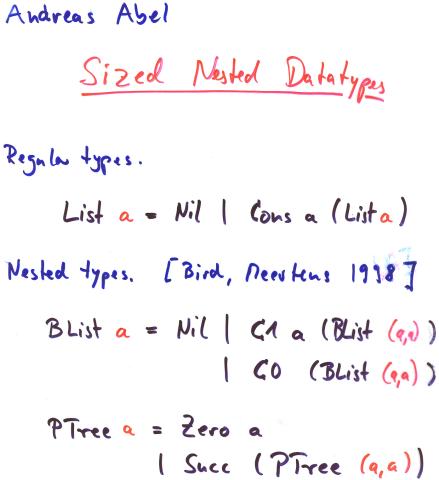 Andreas Abel
Sized Nested Datatypes
Regular types.
List a = Nil | Cons a (List a)
Nested types. [Bird, Meertens 1998]
BList a = Nil | C1 a (BList (a,a))
| C0 (BList (a,a))
PTree a = Zero a
| Succ (PTree (a,a))